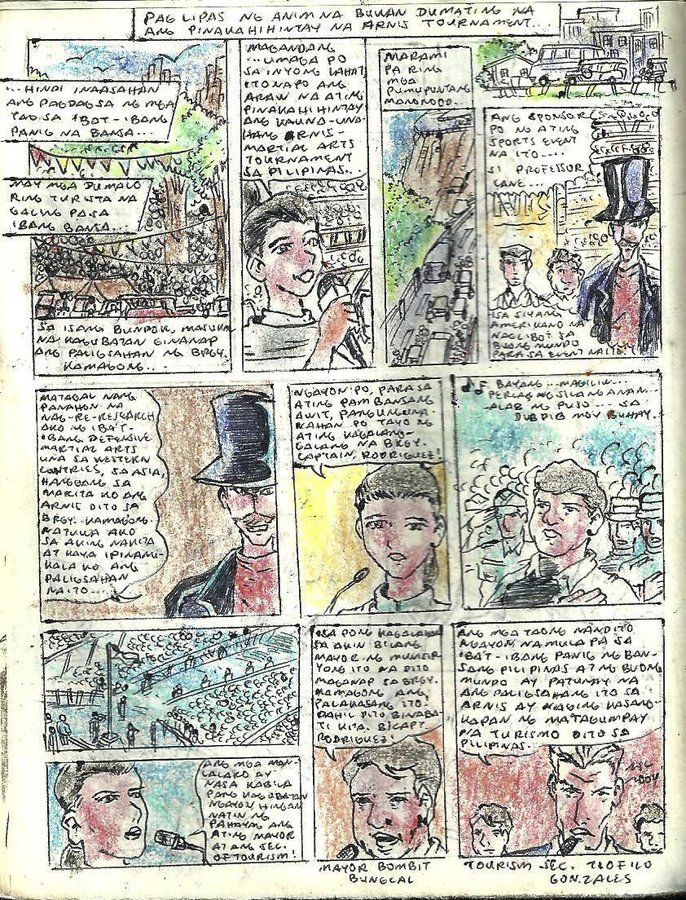 PAG LIPAS NG ANIM NA BUWAN DUMATING NA
ANG PINAKAHIHINTAY NA ARNIS TOURNAMENT...
...HINDI INAASAHAN
ANG PAGDAGSA NG MGA
TAO SA IBAT-IBANG
PANIG NA BANSA...
MAY MGA DUMALO
RING TURISTA NA
GALING PA SA
IBANG BANSA...
SA ISANG BUNDOK, MASUKAL
NA KAGUBATAN GINANAP
ANG PALIGSAHAN NG BRGY.
KAMAGONG...
MAGANDANG
...UMAGA PO
SA INYONG LAHAT
ITO NA PO ANG
ARAW NA ATING
PINAKAHIHINTAY
ANG KAUNA-UNA-
HANG ARNIS-
MARTIAL ARTS
TOURNAMENT
SA PILIPINAS...
MARAMI
PA RING
MGA
PUMUPUNTANG
MANONOOD...
ANG SPONSOR
PO NG ATING
SPORTS EVENT
NA ITO....
SI PROFESSOR
LANE...
ISA SIYANG
AMERIKANO NA
NAGLIBOT SA
BUONG MUNDO
PARA SA EVENT NA ITO
MATAGAL NANG
PANAHON NA
NAG-RE-RESEARCH
AKO NG IBA'T-
IBANG DEFENSIVE
MARTIAL ARTS
UNA SA WESTERN
CONTRIES, SA ASIA,
HANGGANG SA
MAKITA KO ANG
ARNIS DITO SA
BRGY. KAMAGONG.
NATUWA AKO
SA AKING NAKITA
AT KAYA IPINANU-
KALA KO ANG
PALIGSAHAN
NA ITO...
NGAYON PO, PARA SA
ATING PAMBANSANG
AWIT, PANGUNGUNA-
NAHAN PO TAYO NG
ATING KAGALANG-
GALANG NA BRGY.
CAPTAIN, RODRIGUEZ!
BAYANG...MAGILIW...
PERLAS NG SILANGANAN...
ALAB NG PUSO...SA
DIBDIB MOY BUHAY...
ANG MGA MAN-
LALARO AY
NASA KABILA
PANG KAGUBATAN
NGAYON HINGAN
NATIN NG
PAHAYAG ANG
ATING MAYOR
AT ANG SEC.
OF TOURISM!
ISA PONG KAGALAKAN
SA AKIN BILANG
MAYOR NG MUNISIP-
YONG ITO NA DITO
MAGANAP SA BRGY.
KAMAGONG ANG
PALAKASANG ITO.
DAHIL DITO, BINABA-
TI KITA, B[CAPT
RODRIGUEZ!
MAYOR BOMBIT
BUNGCAL
ANG MGA TAONG NANDITO
NGAYON, NA MULA PA SA
IBAT-IBANG PANIG NG BAN-
SANG PILIPINAS AT NG BUONG
MUNDO AY PATUNAY NA
ANG PALIGSAHANG ITO SA
ARNIS AY NAGING KASANG-
KAPAN NG MATAGUMPAY
NA TURISMO DITO SA
PILIPINAS...
TOURISM SEC. TEOFILO
GONZALES